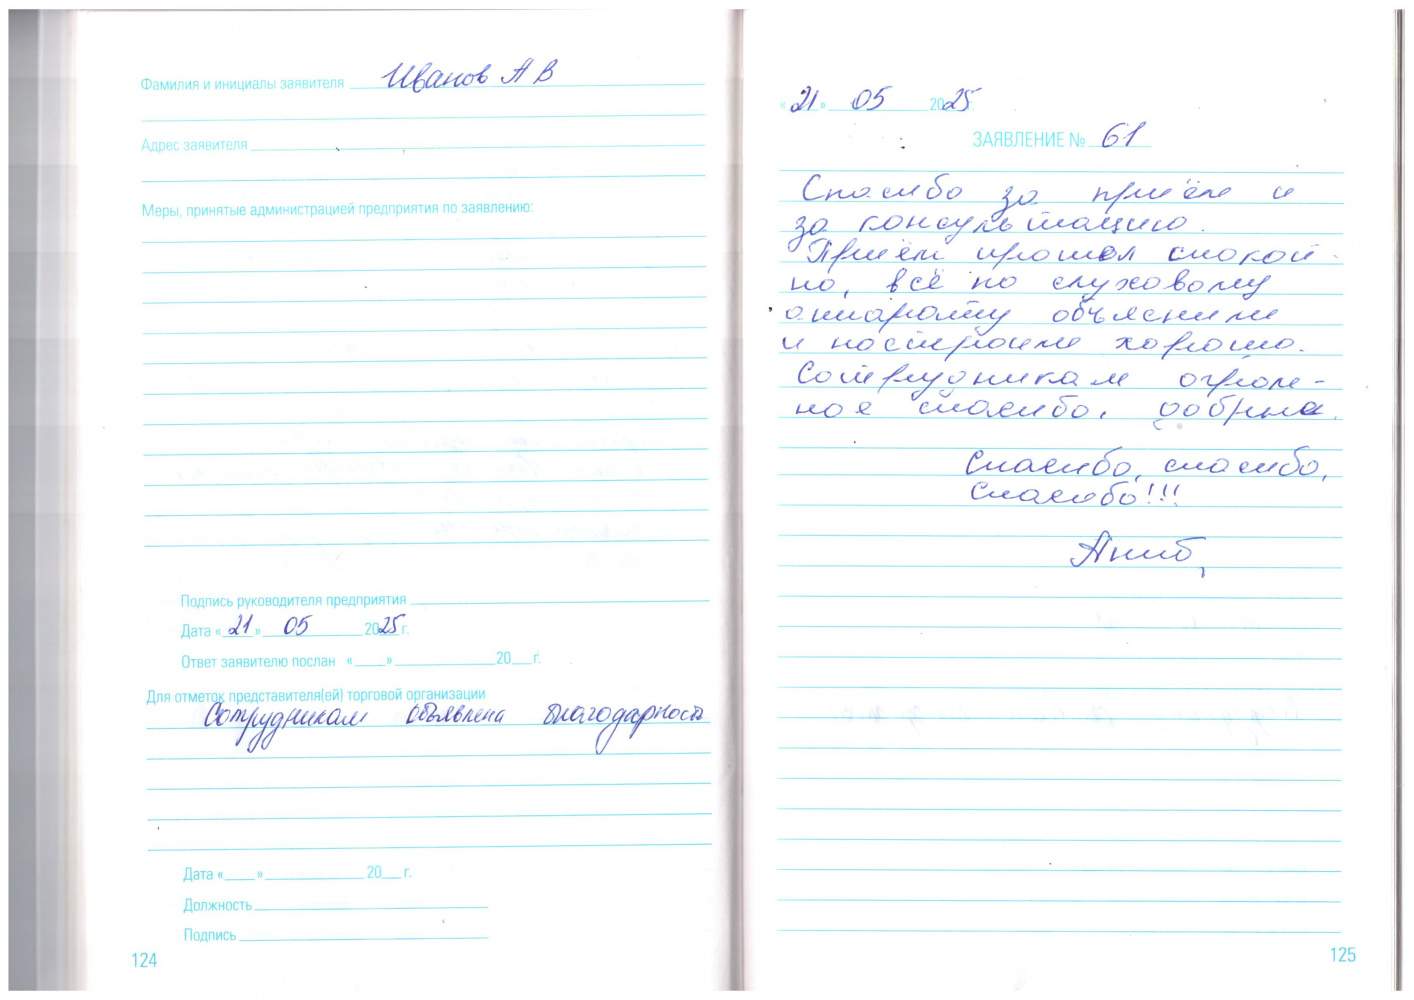 Фамилия и инициалы заявителя Иванов А В
Адрес заявителя
Меры, принятые администрацией предприятия по заявлению:
Подпись руководителя предприятия
Дата «21» 05 2025 г.
Ответ заявителю послан «    »             20    г.
Для отметок представителя(ей) торговой организации
Сотрудникам объявлена благодарность
Дата «    »             20    г.
Должность
Подпись
124
«21» 05 2025
ЗАЯВЛЕНИЕ № 61
Спасибо за приём и
за консультацию.
Приём прошел спокой-
но, всё по слуховому
аппарату объяснили
и настроили хорошо.
Сотрудникам огром-
ное спасибо,
Спасибо, спасибо,
Спасибо!!!
125